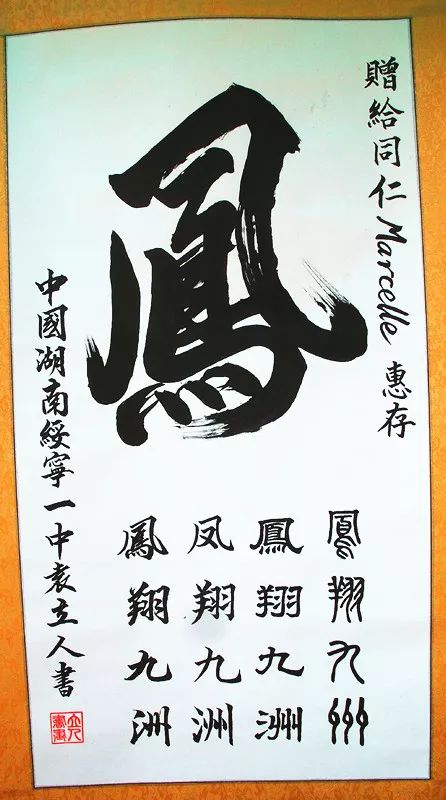 贈給同仁Marcelle 惠存
鳳
鳳翔九州
鳳翔九洲
凤翔九洲
鳳翔九洲
中國湖南綏寧一中袁立人書